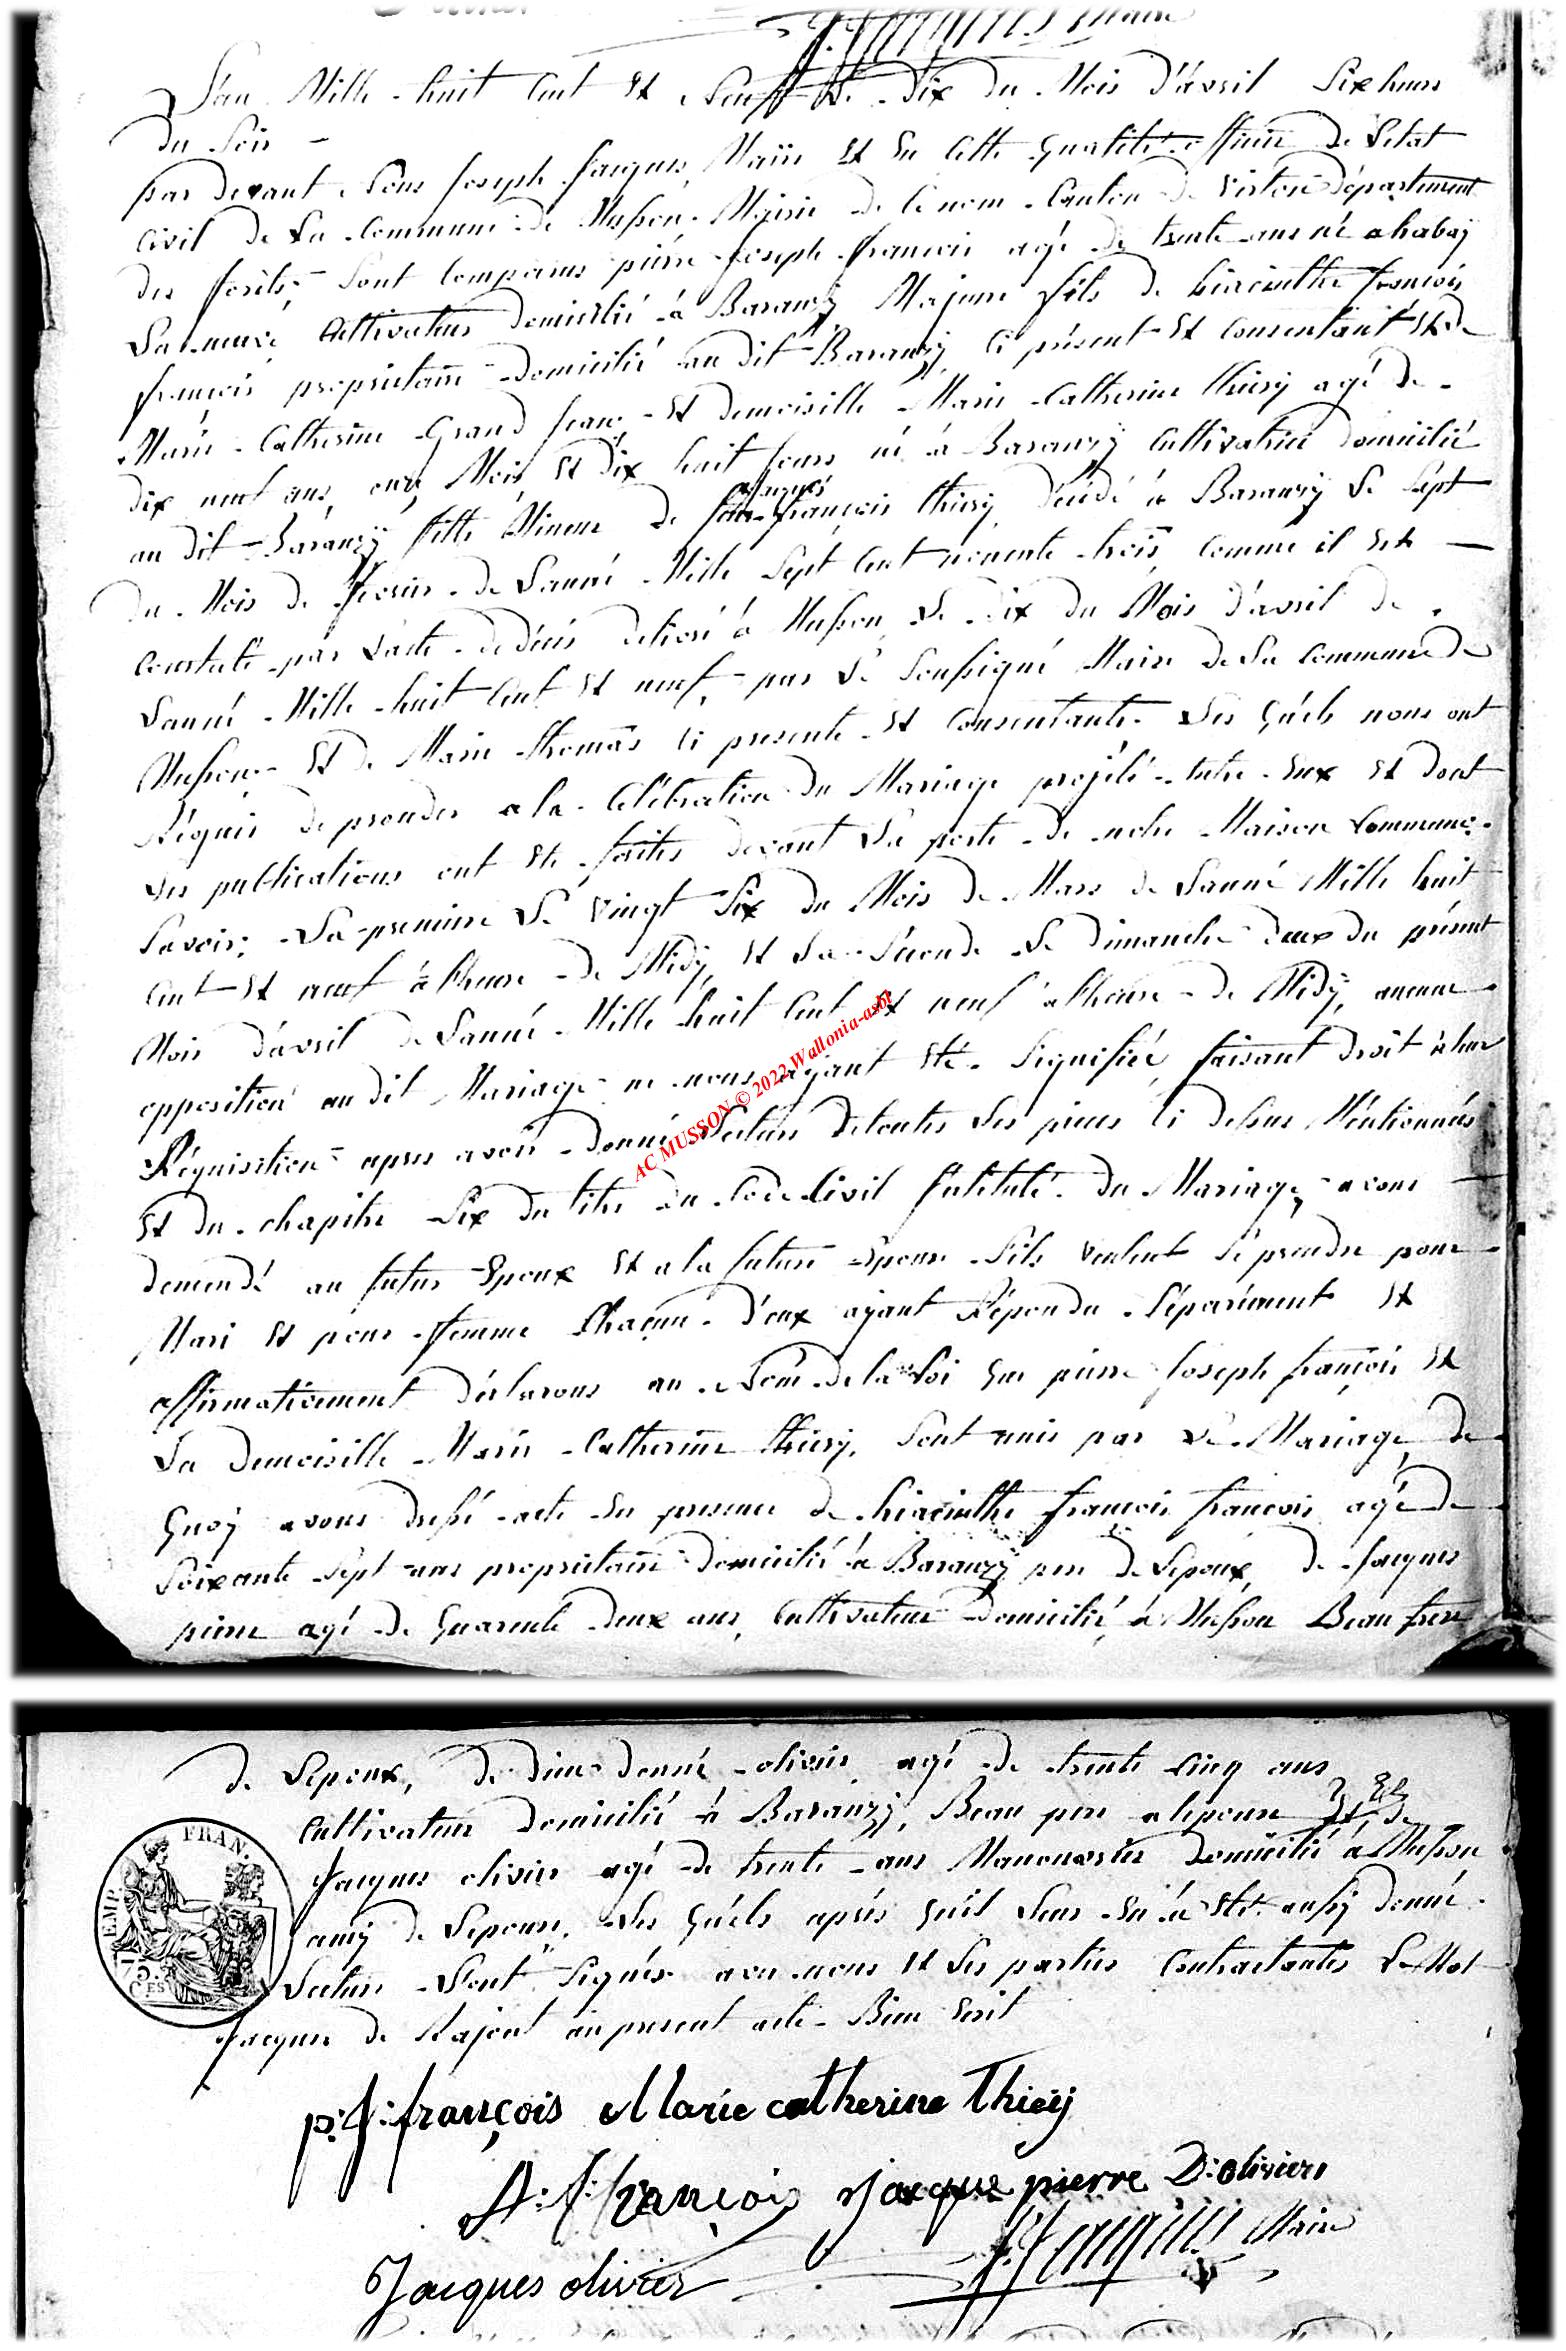 Maire
L'an Mille huit Cent Et Neuff Le Dix du Mois d'avril Six heures
du Soir
par devant Nous Joseph Jacques, Maire Et En Cette Qualité officier De L'etat
Civil De La Commune De Musson Mairie De Ce nom Canton De Virton Département
des forêts, Sont Comparus pierre Joseph francois agé De trente ans né a habaÿ
La neuve Cultivateur Domicilié à Baranzÿ Majeure fils De hiacinthe francois
françois propriétaire Domicilié au dit Baranzÿ Ci présent Et Consentant Et De
Marie Catherine Grand Jean Et Demoiselle Marie Catherine thierÿ agé De
dix neuf ans, onze Mois Et Dix huit Jours né à Baranzÿ Cultivatrice Domicilié
au dit Baranzÿ fille Mineure De feu jacques françois thierÿ Décédé à Baranzÿ Le Sept
du Mois De fevrier De L'anné Mille Sept Cent nonente trois Comme il Est
Constaté par L'acte De décès delivré à Musson Le Dix Du Mois D'avril De
L'anné Mille huit Cent Et neuf, par Le Soussigné Maire De La Commune De
Musson Et De Marie thomas Ci presente Et Consentante Les Quels nous ont
Réquis De proceder a la Célébration Du Mariage projété entre Eux Et Dont
Les publications ont Eté faites Devant La porte De notre Maison Commune
Savoir, La premiere Le Vingt Six Du Mois De Mars De L'anné Mille huit
Cent Et neuf à l'heure De Midÿ, Et La Séconde Le Dimanche Deux Du présent
Mois D'avril De L'anné Mille huit Cent Et neuf à l'heure De Midÿ, aucune
opposition au Dit Mariage ne nous aÿant Eté Signifiée, faisant Droit à leur
Réquisition apres avoir Donné Lecture De toutes Les pieces Ci Dessus Méntionnées
Et Du chapitre Six Du titre Du Code Civil Intitulé Du Mariage, avons
Demendé au futur Epoux Et a la future Epouse S'ils veulent Se prendre pour
Mari Et pour femme Chacun D'eux aÿant Répondu Séparément Et
affirmativement Déclarons au Nom De la Loi Que pierre Joseph françois Et
La Demoiselle Marie Catherine thierÿ, Sont unis par Le Mariage, De
Quoÿ avons Dressé acte En presence De hiacinthe francois francois agé De
Soixante Sept ans propriétaire Domicilié à Baranzÿ pere De L'epoux, De Jacques
pierre agé De Quarente Deux ans, Cultivateur Domicilié à Musson Beau frere
De L'epoux, De Dieu donné olivier agé De trente Cinq ans
Cultivateur Domicilié à Baranzÿ, Beau pere a l'epouse Et De
Jacques olivier agé De trente ans Manouvrier Domicilié à Musson
amÿ De L'epouse, Les Quels après Qu'il Leur En a Eté aussÿ Donné
Lecture L'ont Signés avec nous Et Les parties Contractantes Le Mot
Jacques De Rajout au present acte Bien Ecrit
EMP. FRAN.
75.
CES
p: J: françois Marie catherine Thierÿ
h: f: françois jacque pierre D: olivier
Jacques olivier J: Jacques Maire
AC MUSSON © 2022 Wallonia-asbl